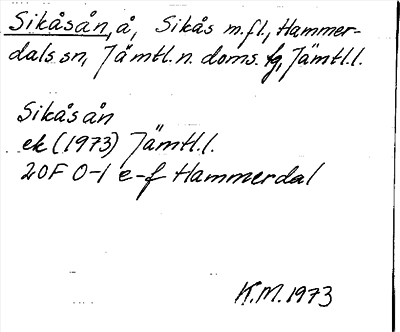 Sikåsån, å, Sikås m.fl., Hammer-
dals sn, Jämtl. n. doms. fg, Jämtl.l.
Sikåsån
ek (1973) Jämtl.l.
20F 0-1 e-f Hammerdal
K.M. 1973